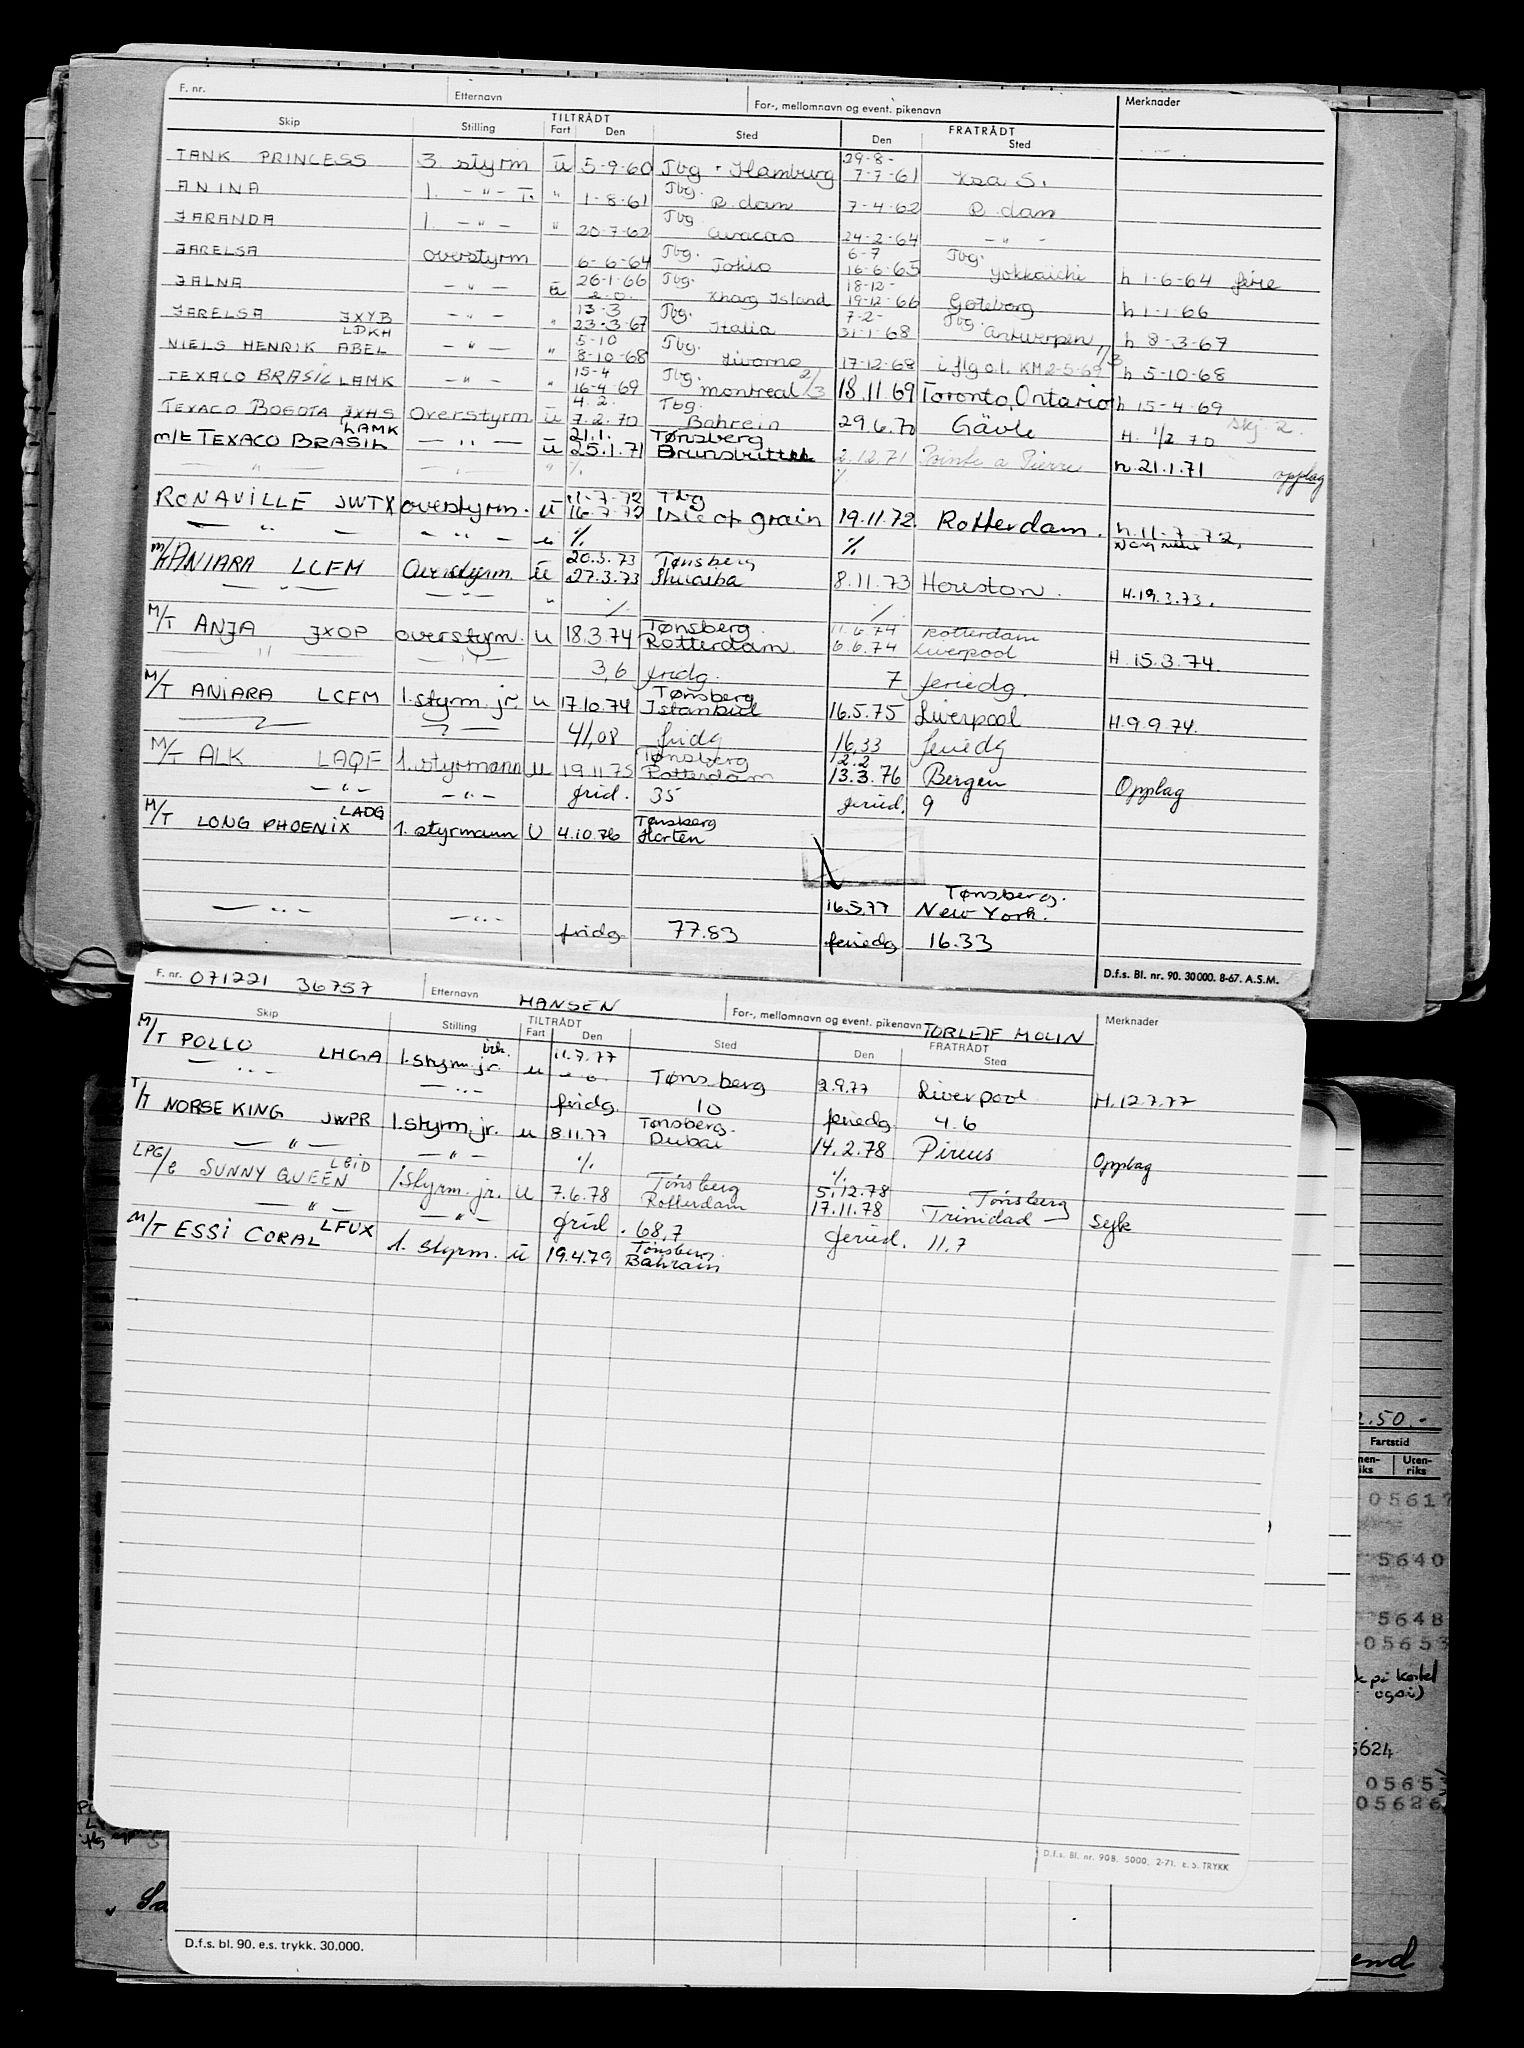 F. nr. Etternavn For-, mellomnavn og event. pikenavn Merknader
Skip Stilling TILTRÅDT Fart Den Sted FRATRÅDT Den Sted
TANK PRINCESS 3. styrm ū 5-9-60 Tbg. Hamburg 29-8- 7-7-61
ANINA 1. -"- T. " 1-8-61 Tbg. R.dam 7-4-62 R.dam
JARANDA 1. -"- " 20-7-62 Tbg Curacao 24-2-64 -"-
JARELSA overstyrm 6-6-64 Tbg. Tokio 6-7 16-6-65 Tbg. Yokkaichi h 1-6-64 ferie
JALNA -"- ū 26-1-66 2.0. Tbg. Kharg Island 18-12- 19-12-66 Gøteborg h 1-1-66
JARELSA JXYB LDKH -"- " 13-3 23-3-67 Tbg. Italia 7-2- 31-1-68 Tbg. Antwerpen h 8-3-67
NIELS HENRIK ABEL -"- " 5-10 8-10-68 Tbg. Livorno 17-12-68 i flg o.l. KM 2-5-69 h 5-10-68
TEXACO BRASIL LAMK -"- " 15-4 16-4-69 Tbg. montreal 2/3 18.11.69 Toronto, Ontario h 15-4-69
TEXACO BOGOTA JXHS overstyrm ū 4.2. 7.2.70 Tbg Bahrein 29.6.70 Gävle H. 1/2 70 skj. 2.
m/t TEXACO BRASIL LAMK -"- ū 21.1. 25.1.71 Tønsberg Brunsbüttel 2.12.71 Pointe a Pierre h. 21.1.71 opplag
" -"- " %
RONAVILLE JWTX overstyrm. ū 11-7-72 16.7.72 Tbg Isle of grain 19.11.72 Rotterdam. h. 11-7-72.
-"- -"- u % %
m/t ANIARA LCFM Overstyrm. ū 20.3.73 27.3.73 Tønsberg Shuaiba 8.11.73 Houston. H.19.3.73.
-"- -"- " % %
M/T ANJA JXOP overstyrm. u 18.3.74 Tønsberg Rotterdam 11.6.74 6.6.74 Rotterdam Liverpool H. 15.3.74.
" -"- 3,6 fridg. 7 feriedg.
M/T ANIARA LCFM 1. styrm. jr. u 17.10.74 Tønsberg Istanbul 16.5.75 Liverpool H.9.9.74.
-"- -"- 41,08 fridg 16,33 feriedg
M/T ALK LAQF 1. styrmann u 19.11.75 Tønsberg Rotterdam 12.2 13.3.76 Bergen Opplag
-"- -"- frid. 35 feried. 9
M/T LONG PHOENIX LADG 1. styrmann U 4.10.76 Tønsberg Horten
16.5.77 Tønsberg. New York.
-"- -"- fridg 77.83 feriedg 16.33
D.f.s. Bl. nr. 90. 30 000. 8-67. A.S.M.
F. nr. 071221 36757 Etternavn HANSEN For-, mellomnavn og event. pikenavn TORLEIF MOLIN Merknader
Skip Stilling TILTRÅDT Fart Den Sted FRATRÅDT Den Sted
M/T POLLO LHGA 1. styrm. jr. u 11.7.77 Tønsberg 2.9.77 Liverpool H.12.7.77
-"- -"- fridg. 10 feriedg 4.6
T/T NORSE KING JWPR 1. styrm. jr. u 8.11.77 Tønsberg. Dubai 14.2.78 Pireus Opplag
-"- -"- % %
LPG/c SUNNY QUEEN LEID 1. styrm. jr. u 7.6.78 Tønsberg Rotterdam 5.12.78 17.11.78 Tønsberg Trinidad Syk
-"- -"- frid. 68,7 feried. 11.7
M/T ESSI CORAL LFUX 1. styrm. ū 19.4.79 Tønsberg Bahrain
2.50.-
Fartstid
Uten-riks
05617
5640
5648
05653
på kortet også)
5624
05653
05626
D.f.s. Bl. nr. 908. 5000. 2-71. e. s. TRYKK
D.f.s. bl. 90. e.s. trykk. 30.000.